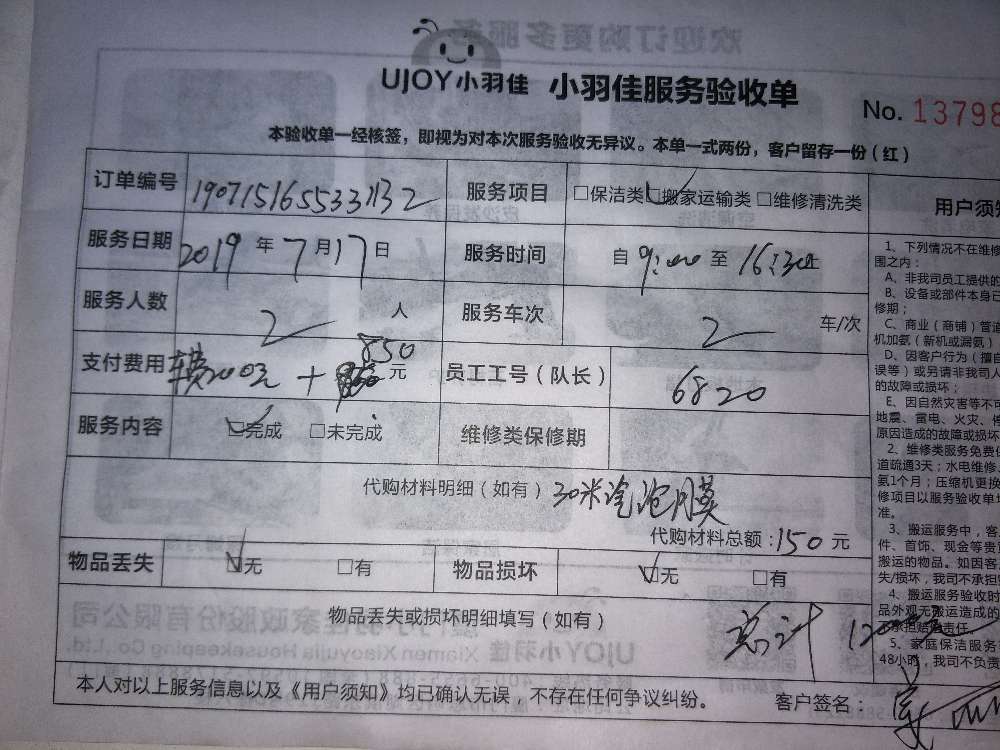 UJOY小羽佳 小羽佳服务验收单
No. 13798
本验收单一经核签，即视为对本次服务验收无异议。本单一式两份，客户留存一份（红）
订单编号 1907151655331132 服务项目 □保洁类 ☑搬家运输类 □维修清洗类
服务日期 2019 年 7 月 17 日 服务时间 自 9:00 至 16:30止
服务人数 2 人 服务车次 2 车/次
支付费用 200元 + 850 元 员工工号（队长） 6820
服务内容 ☑完成 □未完成 维修类保修期
代购材料明细（如有）30米泡膜
代购材料总额：150 元
物品丢失 ☑无 □有 物品损坏 ☑无 □有
物品丢失或损坏明细填写（如有）
总计
本人对以上服务信息以及《用户须知》均已确认无误，不存在任何争议纠纷。 客户签名：
用户须知
1、下列情况不在维修
围之内：
A、非我司员工提供的
B、设备或部件本身已
修期；
C、商业（商铺）管道
机加氨（新机或漏氨）
D、因客户行为（擅自
误等）或另请非我司人
的故障或损坏；
E、因自然灾害等不可
地震、雷电、火灾、
原因造成的故障或损坏
2、维修类服务免费保
道疏通3天；水电维修、
氨1个月；压缩机更换
修项目以服务验收单
准。
3、搬运服务中，客
件、首饰、现金等贵
搬运的物品。如因客
失/损坏，我司不承担
4、搬运服务验收时
品外观无搬运造成的
不承担赔偿责任
5、家庭保洁服务
48小时，我司不负责